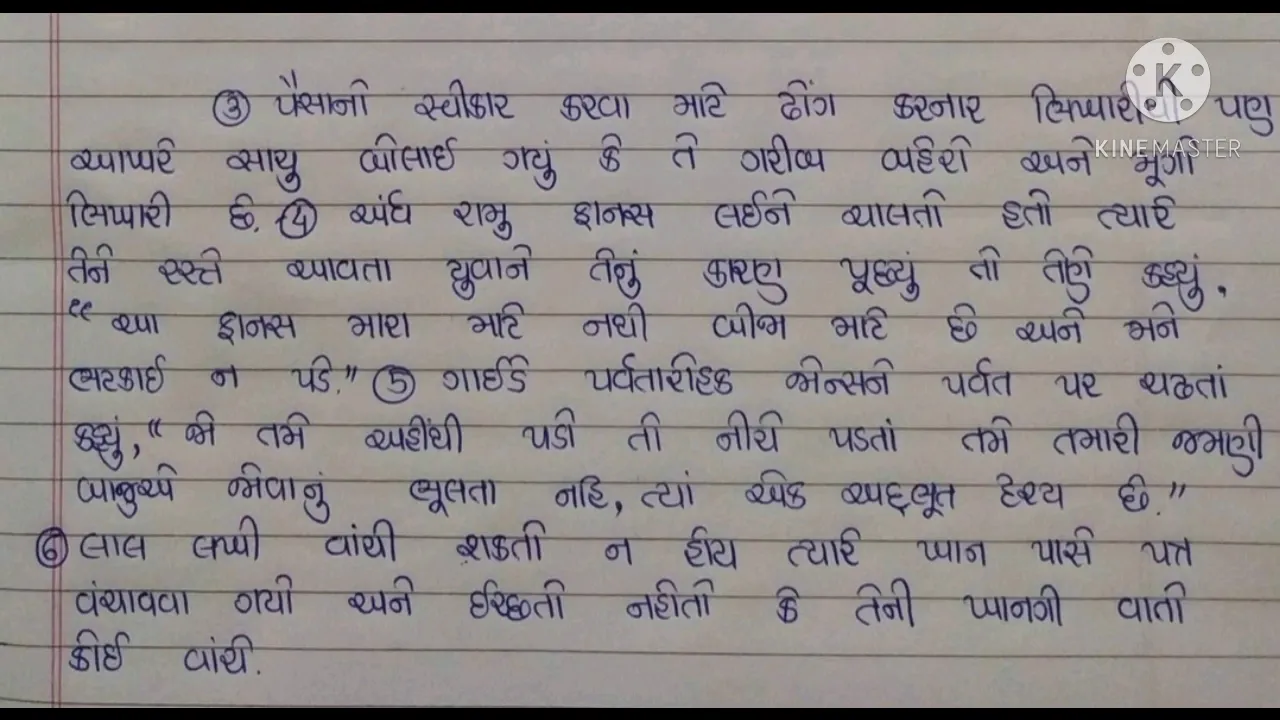 ③ પૈસાનો સ્વીકાર કરવા માટે ઢોંગ કરનાર ભિખારીથી પણ
આખરે સાચુ બોલાઈ ગયું કે તે ગરીબ બહેરો અને મૂંગો
ભિખારી છે. ④ અંધ રામુ ફાનસ લઈને ચાલતો હતો ત્યારે
તેને રસ્તે આવતા યુવાને તેનું કારણ પૂછ્યું તો તેણે કહ્યું.
“આ ફાનસ મારા માટે નથી બીજા માટે છે અને મને
ભટકાઈ ન પડે.” ⑤ ગાઈડે પર્વતારોહક જોન્સને પર્વત પર ચઢતાં
કહ્યું, “જો તમે અહીંથી પડો તો નીચે પડતાં તમે તમારી જમણી
બાજુએ જોવાનું ભૂલતા નહિ, ત્યાં એક અદ્ભૂત દૃશ્ય છે.”
⑥ લાલ લખી વાંચી શકતો ન હોય ત્યારે ખાન પાસે પત્ર
વંચાવવા ગયો અને ઈચ્છતો નહોતો કે તેની ખાનગી વાતો
કોઈ વાંચે.
K
KINEMASTER